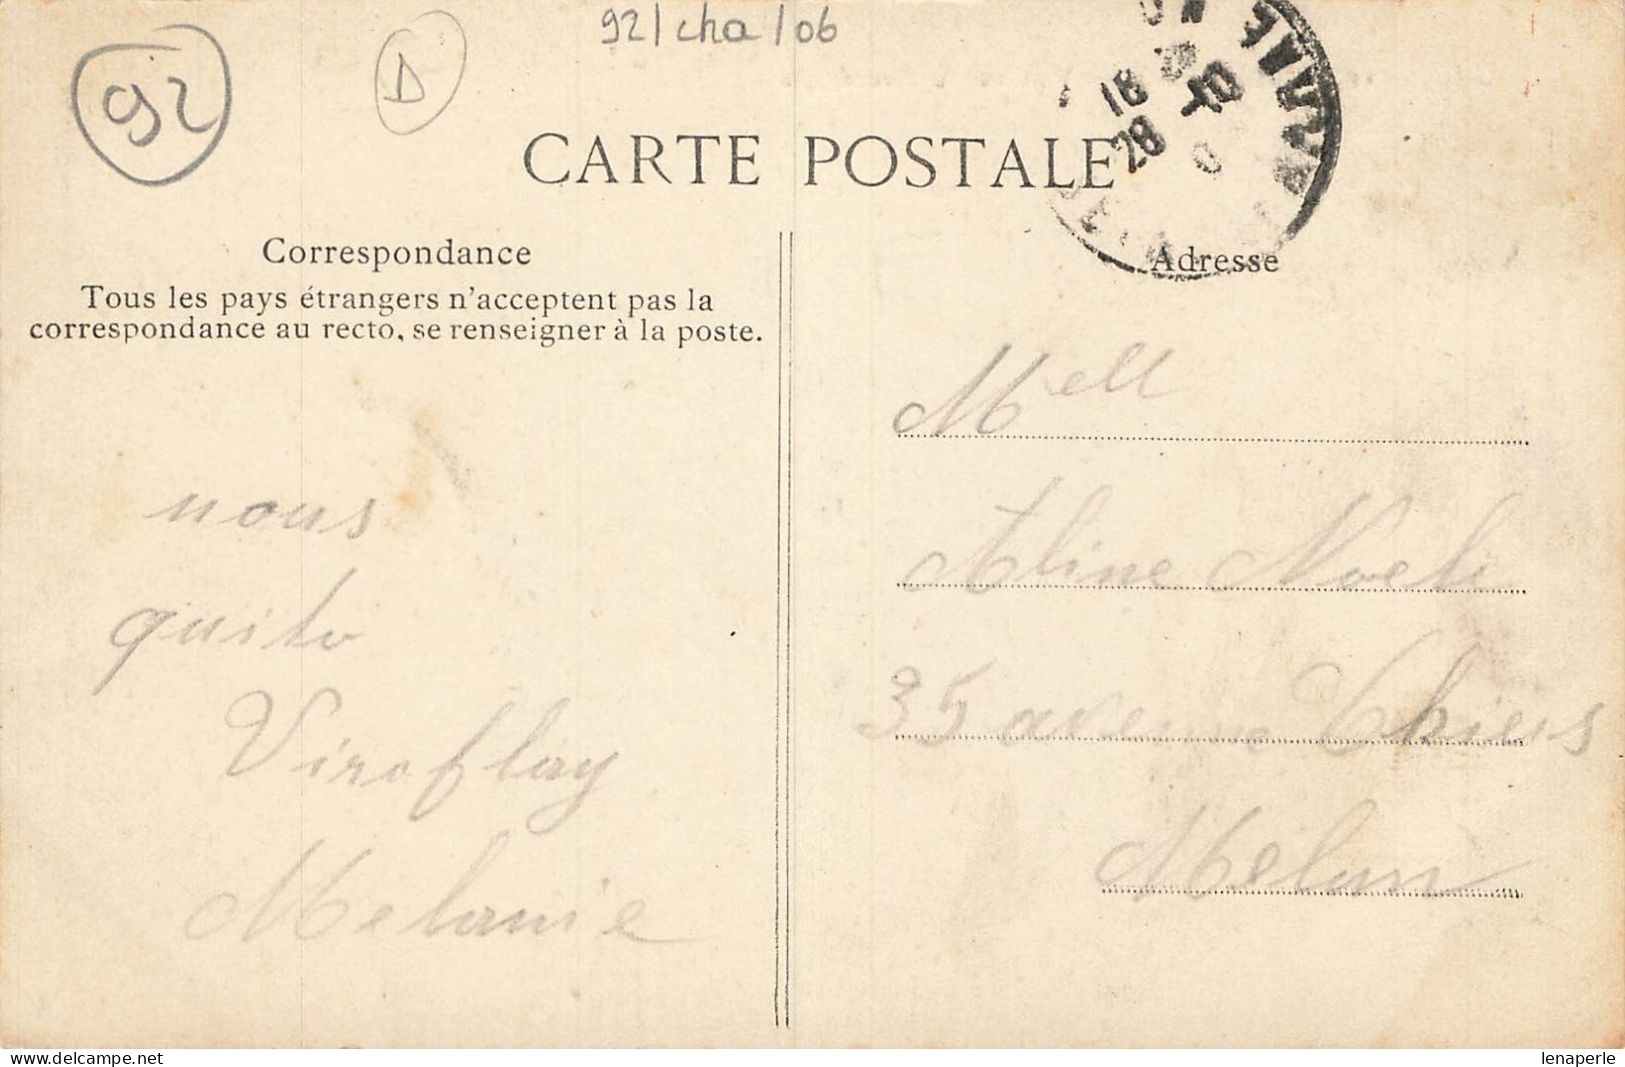 92
D
92/cha/06
CARTE POSTALE
18
28 - 10
Correspondance
Tous les pays étrangers n'acceptent pas la
correspondance au recto, se renseigner à la poste.
Adresse
nous
quito
Viroflay
Melanie
Mell
Aline
35 avenue Thiers
Melun
www.delcampe.net
lenaperle